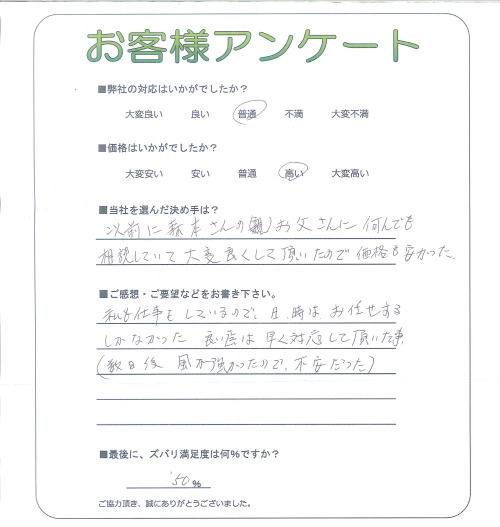 お客様アンケート
■弊社の対応はいかがでしたか？
大変良い 良い 普通 不満 大変不満
■価格はいかがでしたか？
大変安い 安い 普通 高い 大変高い
■当社を選んだ決め手は？
以前に森本さんの お父さんに何んでも
相談していて大変良くして頂いたので価格も安かった.
■ご感想・ご要望などをお書き下さい。
私も仕事をしているので、日、時はお任せする
しかなかった 良い点は早く対応して頂いた事
(数日後 風が強かったので、不安だった)
■最後に、ズバリ満足度は何%ですか？
50 %
ご協力頂き、誠にありがとうございました。